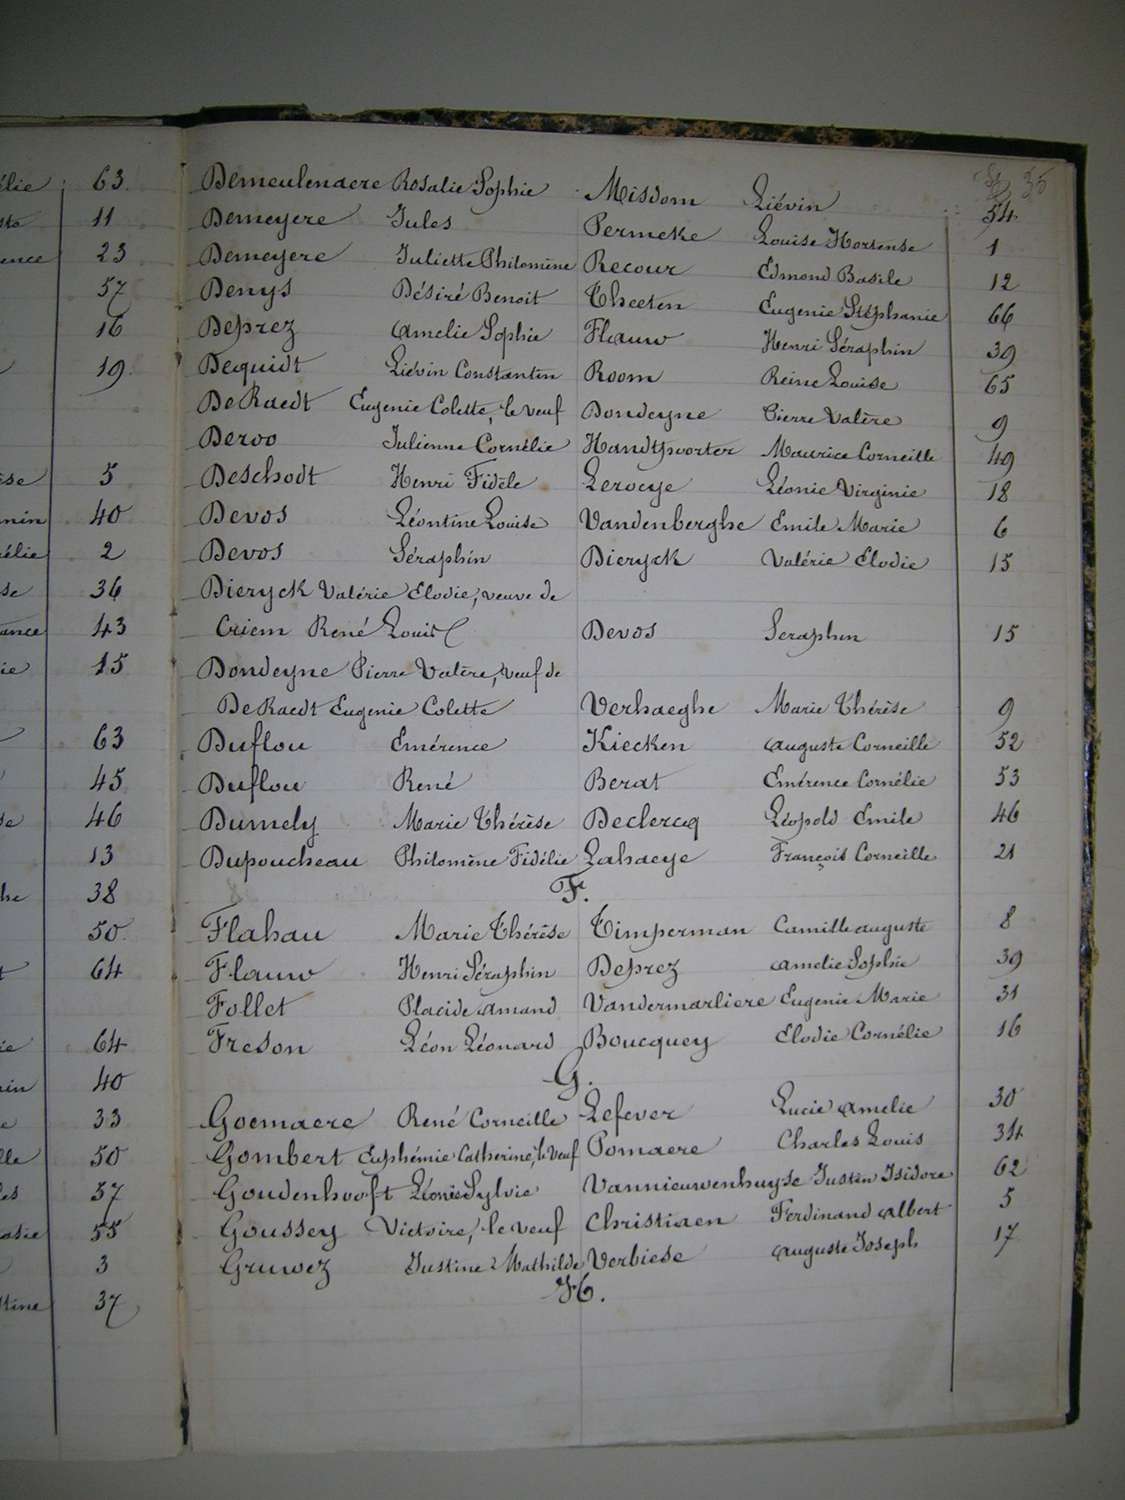 35
élie 63
11
ence 23
57
16
19
5
nin 40
élie 2
se 36
ance 43
ie 15
63
45
se 46
13
he 38
50
64
ie 64
in 40
e 33
lle 50
les 57
asie 55
3
stine 37
Demeulenaere Rosalie Sophie Misdom Liévin 54
Demeyere Jules Permeke Louise Hortense 1
Demeyere Juliette Philomène Recour Edmond Basile 12
Denys Désiré Benoit Theeten Eugenie Stéphanie 66
Deprez Amelie Sophie Flauw Henri Séraphin 39
Dequidt Liévin Constantin Room Reine Louise 65
De Raedt Eugenie Colette, le veuf Dondeyne Pierre Valère 9
Deroo Julienne Cornélie Handtpoorter Maurice Corneille 49
Deschodt Henri Fidèle Leroeye Léonie Virginie 18
Devos Léontine Louise Vandenberghe Emile Marie 6
Devos Séraphin Dieryck Valérie Elodie 15
Dieryck Valérie Elodie, veuve de
Criem René Louis Devos Seraphin 15
Dondeyne Pierre Valère, veuf de
De Raedt Eugenie Colette Verhaeghe Marie Thérèse 9
Duflou Emérence Kiecken Auguste Corneille 52
Duflou René Berat Emérence Cornélie 53
Dumely Marie Thérèse Declercq Léopold Emile 46
Dupoucheau Philomène Fidélie Lahaeye François Corneille 21
F.
Flahau Marie Thérèse Timperman Camille Auguste 8
Flauw Henri Séraphin Deprez Amelie Sophie 39
Follet Placide Amand Vandermarliere Eugenie Marie 31
Freson Léon Léonard Boucquey Elodie Cornélie 16
G.
Goemaere René Corneille Lefever Lucie Amelie 30
Gombert Euphémie Catherine, le veuf Pomaere Charles Louis 34
Goudenhooft Léonie Sylvie Vannieuwenhuyse Justin Isidore 62
Goussey Victoire, le veuf Christiaen Ferdinand Albert 5
Gruwez Justine Mathilde Verbiese Auguste Joseph 17
H.